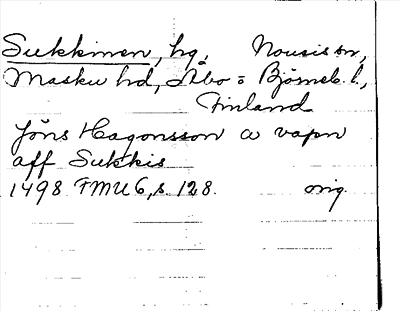 Sukkinen, hg, Nousis sn,
Masku hd, Åbo = Björneb. l.,
Finland
Jöns Hagonsson a vapn
aff Sukkis
1498 FMU 6, s. 128. orig.